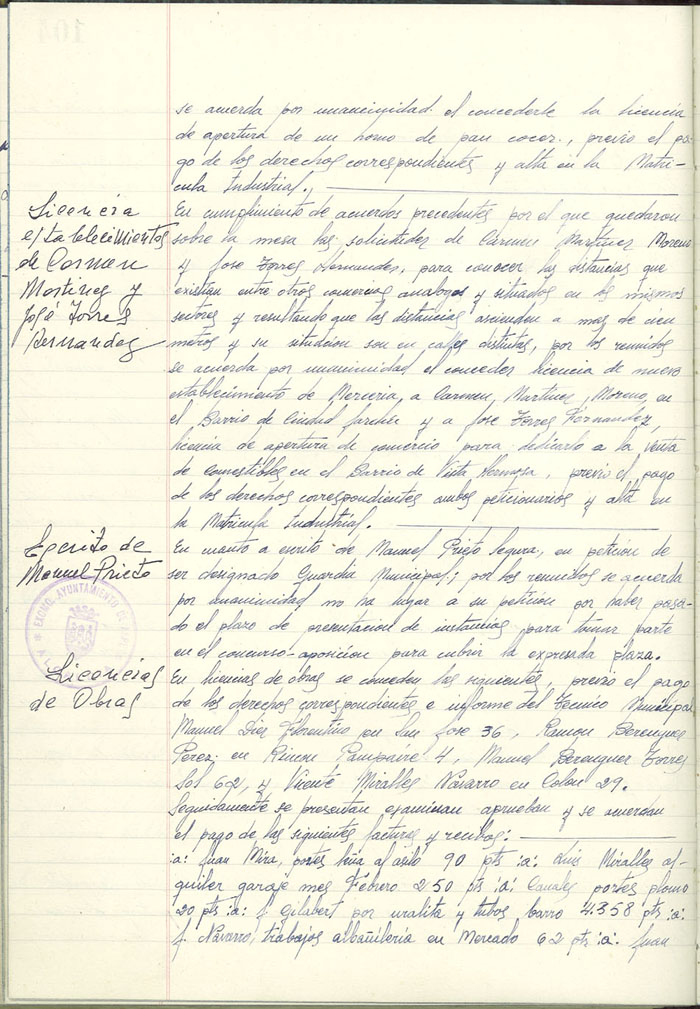 se acuerda por unanimidad el concederle la licencia
de apertura de un horno de pan cocer, previo el pa-
go de los derechos correspondientes y alta en la Matri-
cula Industrial.,
Licencia
establecimientos
de Carmen
Martinez y
José Torres
Hernandez
En cumplimiento de acuerdos precedentes por el que quedaron
sobre la mesa las solicitudes de Carmen Martinez Moreno
y Jose Torres Hernandez, para conocer las distancias que
existian entre otros comercios analogos y situados en los mismos
sectores y resultando que las distancias ascienden a mas de cien
metros y su situacion son en calles distintas, por los reunidos
se acuerda por unanimidad el conceder licencia de nuevo
establecimiento de Merceria, a Carmen, Martinez, Moreno, en
el Barrio de Ciudad Jardin y a Jose Torres Fernandez,
licencia de apertura de comercio para dedicarlo a la venta
de Comestibles en el Barrio de Vista Hermosa, previo el pago
de los derechos correspondientes ambos peticionarios y alta en
la Matricula Industrial.
Escrito de
Manuel Prieto
EXCMO. AYUNTAMIENTO DE
En cuanto a escrito de Manuel Prieto Segura, en peticion de
ser designado Guardia Municipal; por los reunidos se acuerda
por unanimidad no ha lugar a su peticion por haber pasa-
do el plazo de presentacion de instancias, para tomar parte
en el concurso-oposicion para cubrir la expresada plaza.
Licencias
de Obras
En licencias de obras se conceden las siguientes, previo el pago
de los derechos correspondientes e informe del Tecnico Municipal
Manuel Diez Florentino en San Jose 36, Ramon Berenguer
Perez en Rincon 4, Manuel Berenguer Torres
Sol 62, y Vicente Miralles Navarro en Colon 29.
Seguidamente se presentan examinan aprueban y se acuerdan
el pago de las siguientes facturas y recibos:
:a: Juan Mira, portes leña al asilo 90 pts :a: Luis Miralles al-
quiler garaje mes Febrero 250 pts :a: Canales portes plomo
20 pts :a: J. Gilabert por uralita y tubos barro 4.358 pts :a:
J. Navarro, trabajos albañileria en Mercado 62 pts :a: Juan